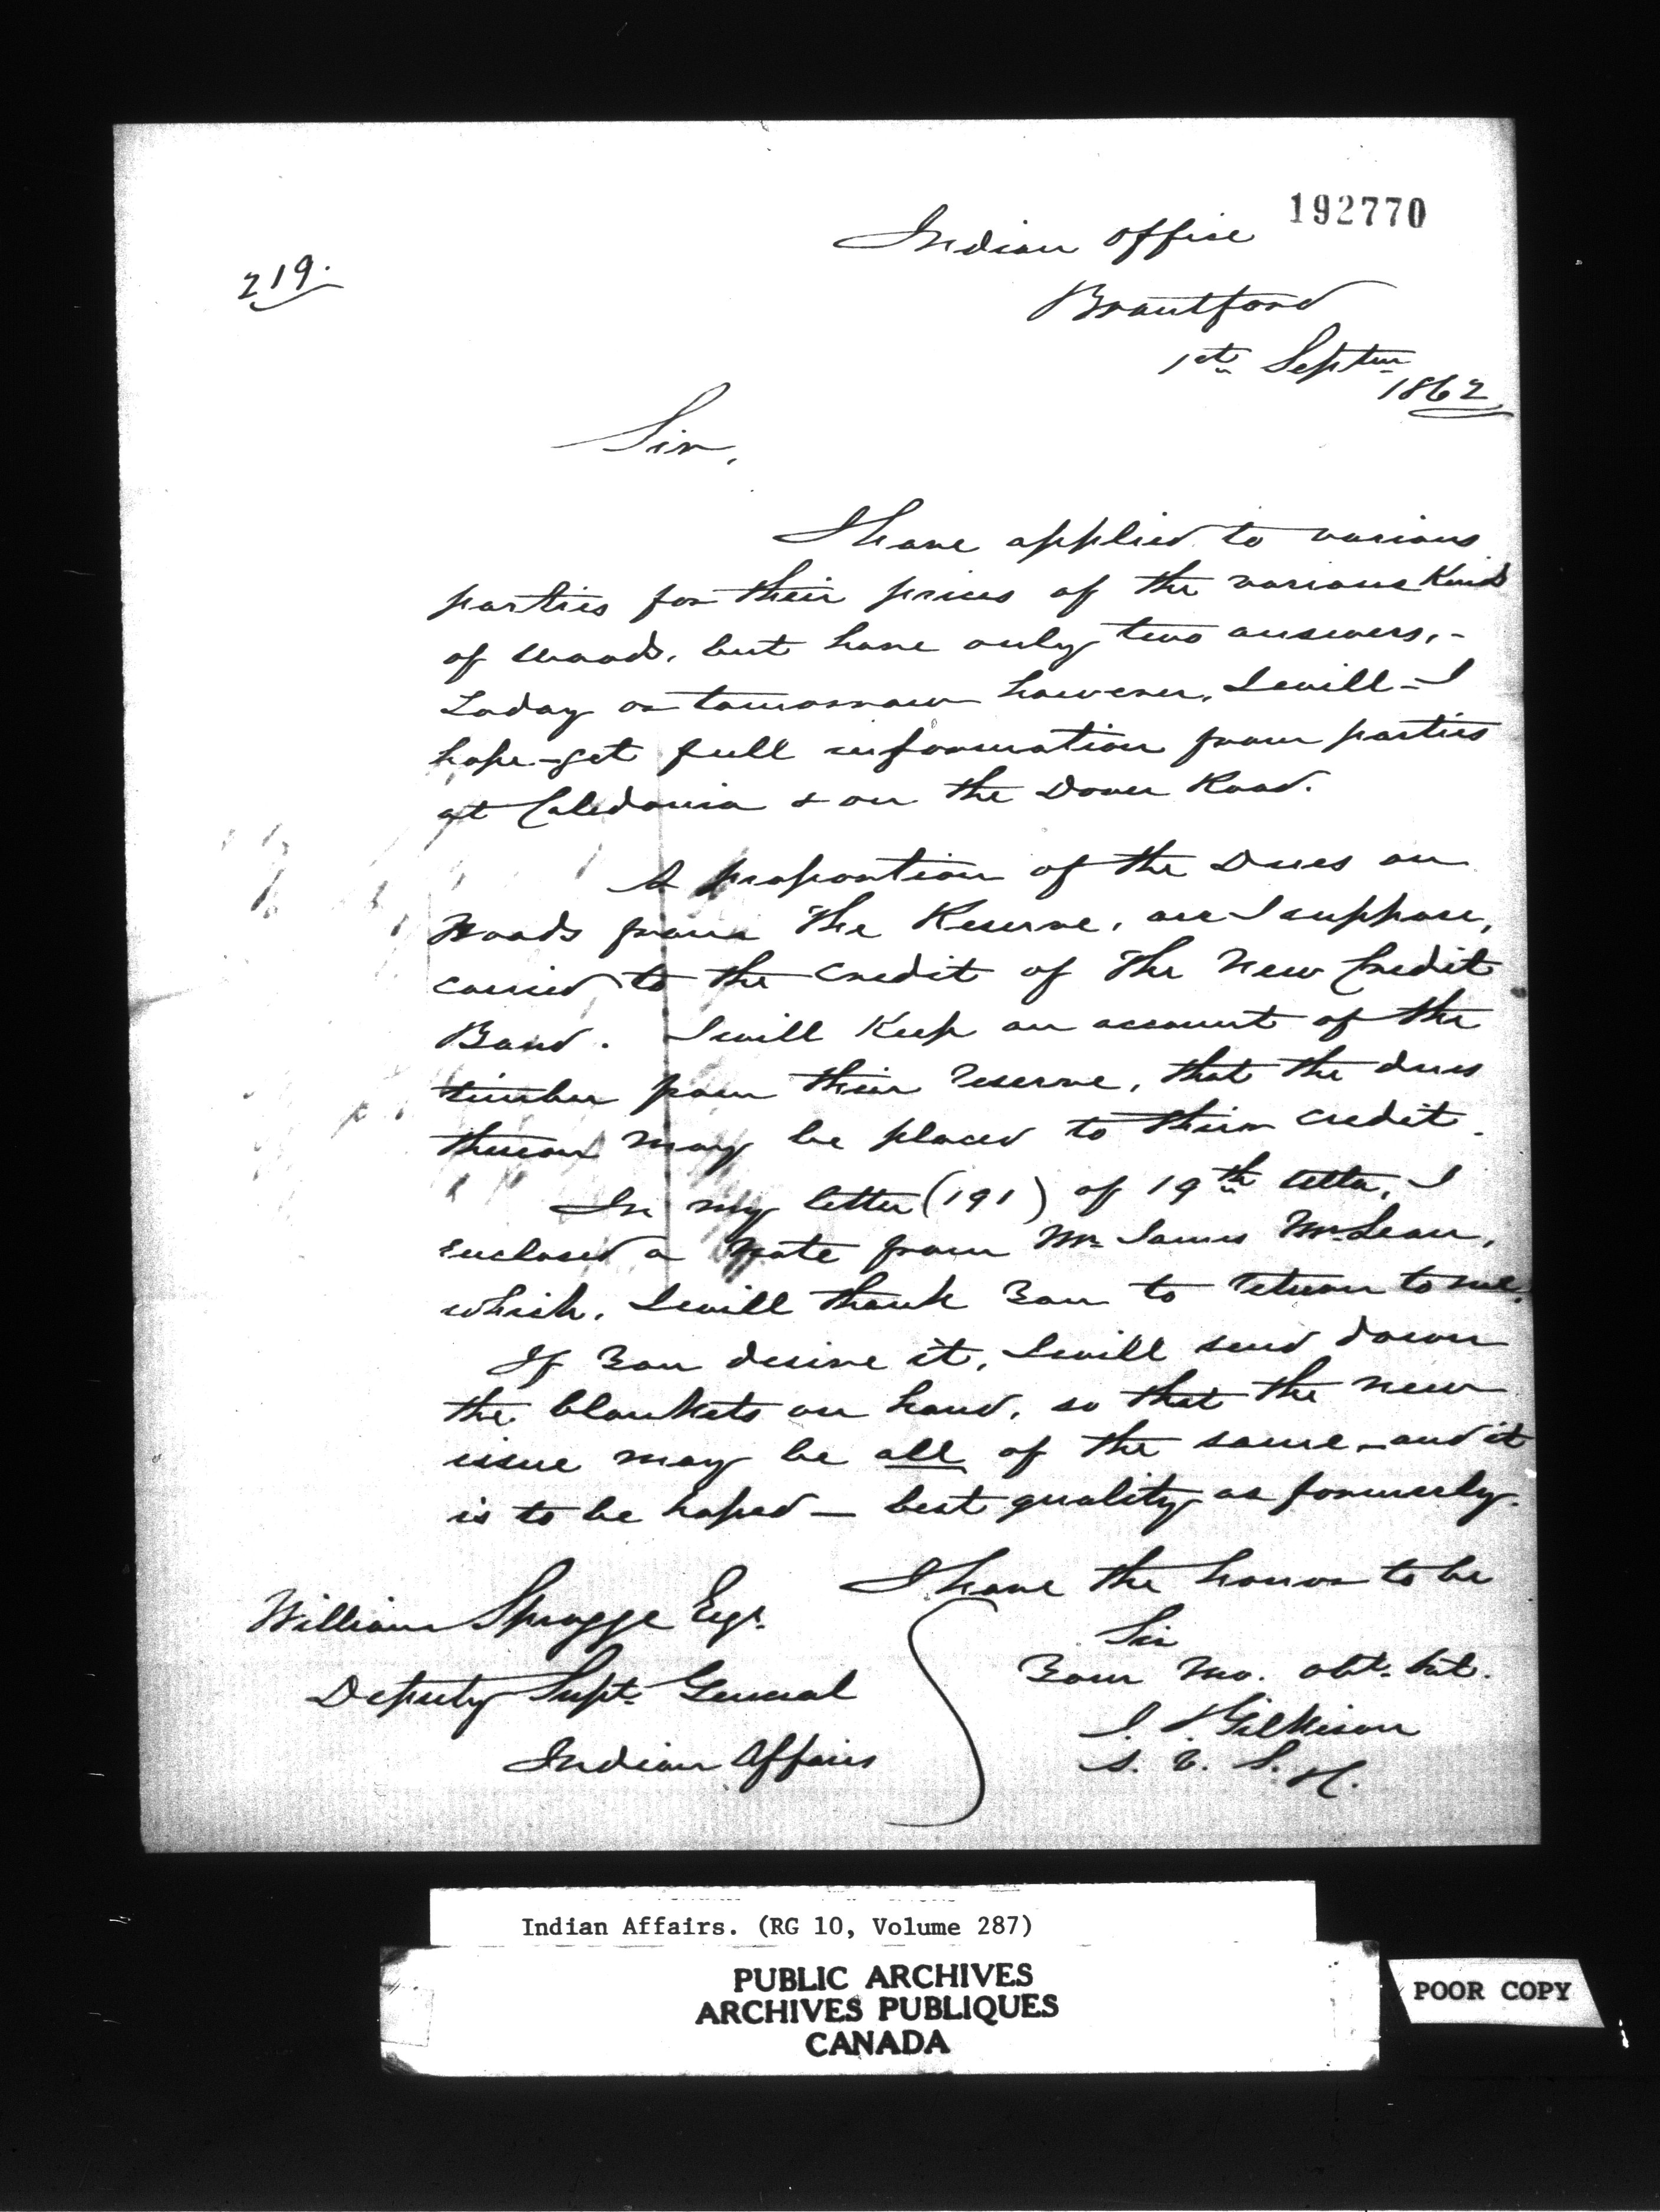 192770
Indian Office
219.
Brantford
1st Septem
1862
Sir,
I have applied to various
parties for their prices of the various Kinds
of wood, but have only two answers, -
Today or tomorrow however, I will - I
hope - get full information from parties
at Caledonia & on the Dover Road.
A proportion of the Dues on
Woods from The Reserve, are I suppose,
carried to the credit of The New Credit
Band. I will Keep an account of the
timber from their Reserve, that the dues
thereon may be placed to their credit.
In my letter (191) of 19th Ulto, I
enclosed a Note from Mr James McLean,
which, I will thank You to return to me.
If You desire it, I will send down
the blankets on hand, so that the new
issue may be all of the same - and it
is to be hoped - best quality as formerly.
I have the honor to be
Sir
Your Mo. obt. Svt.
J. Gilkison
S. V. S. H.
William Spragge Esqr.
Deputy Supt. General
Indian Affairs
Indian Affairs. (RG 10, Volume 287)
PUBLIC ARCHIVES
ARCHIVES PUBLIQUES
CANADA
POOR COPY